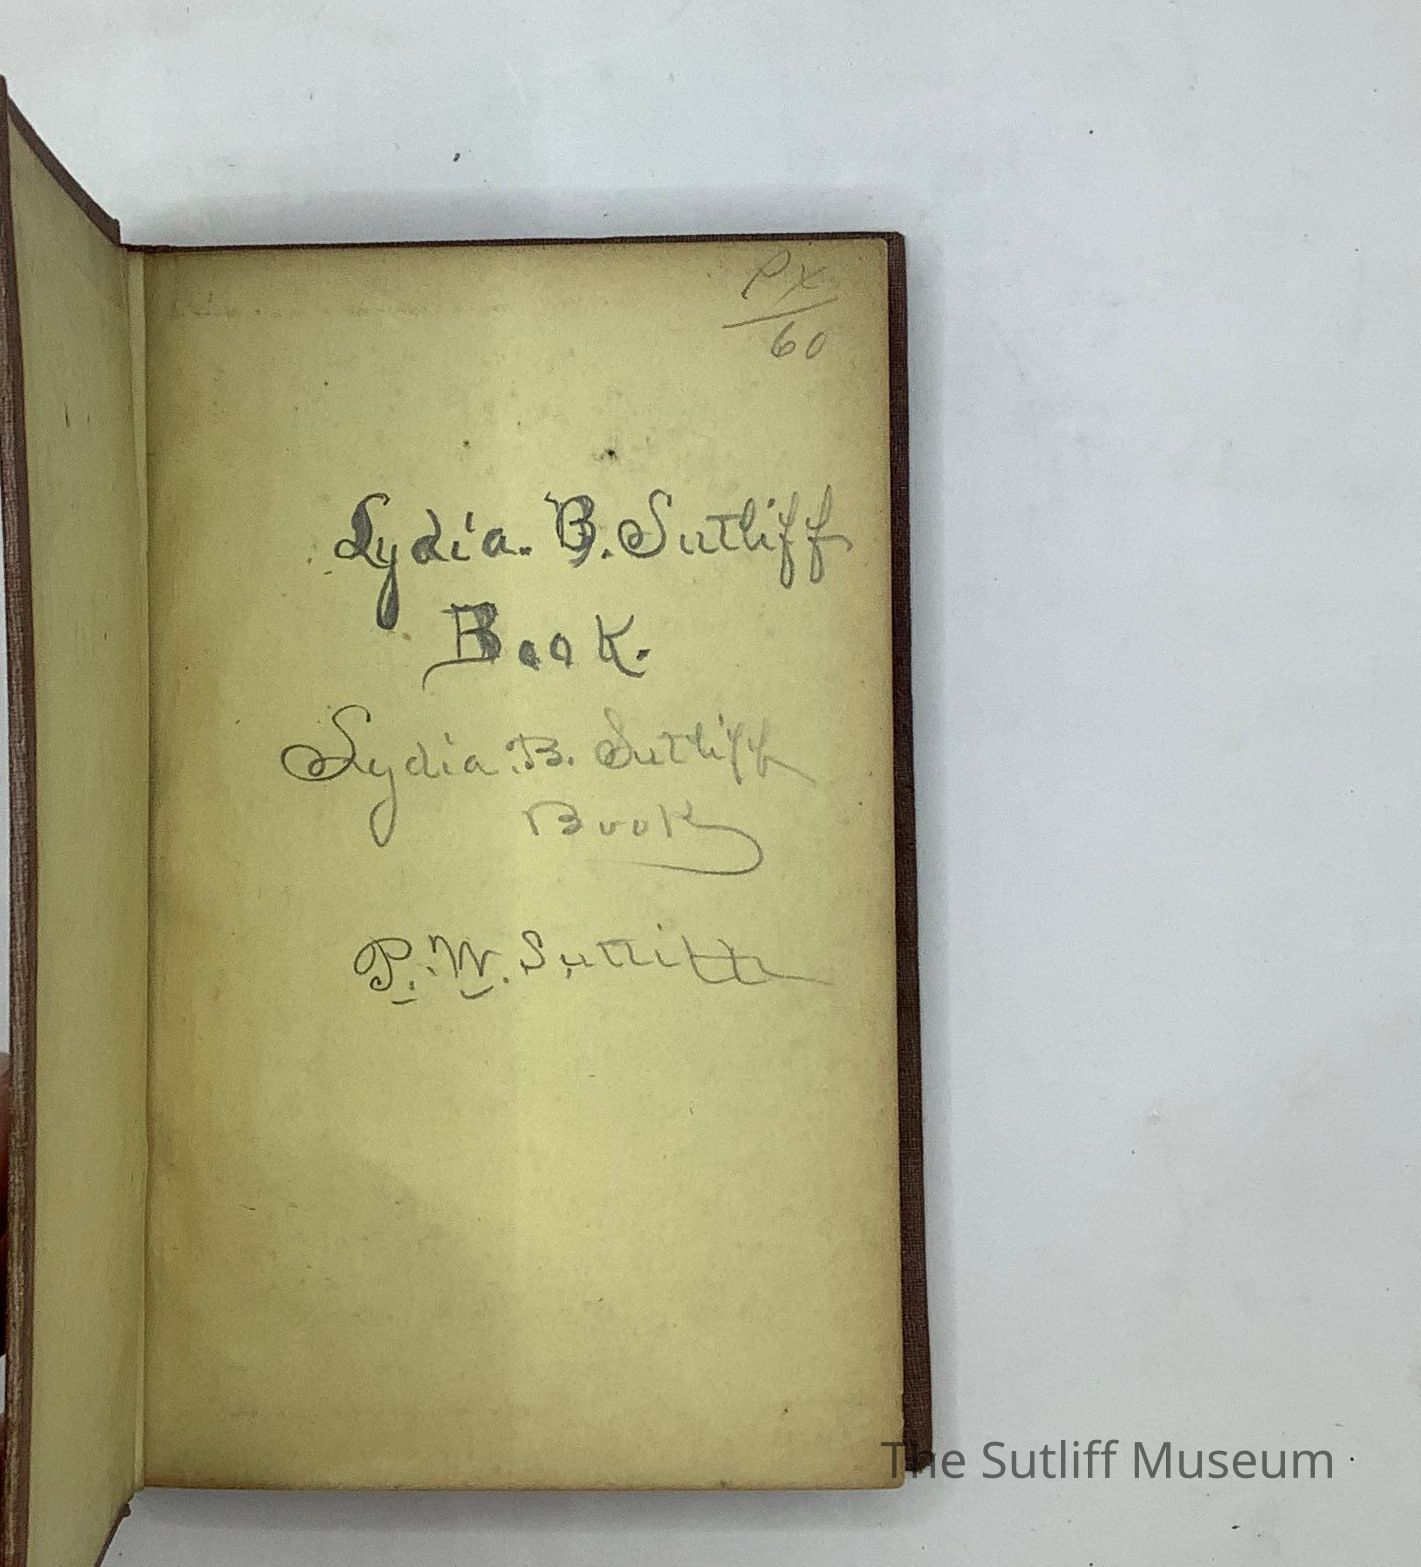 PX
60
Lydia. B. Sutliff
Book.
Lydia. B. Sutliff
Book
P. W. Sutliff
The Sutliff Museum